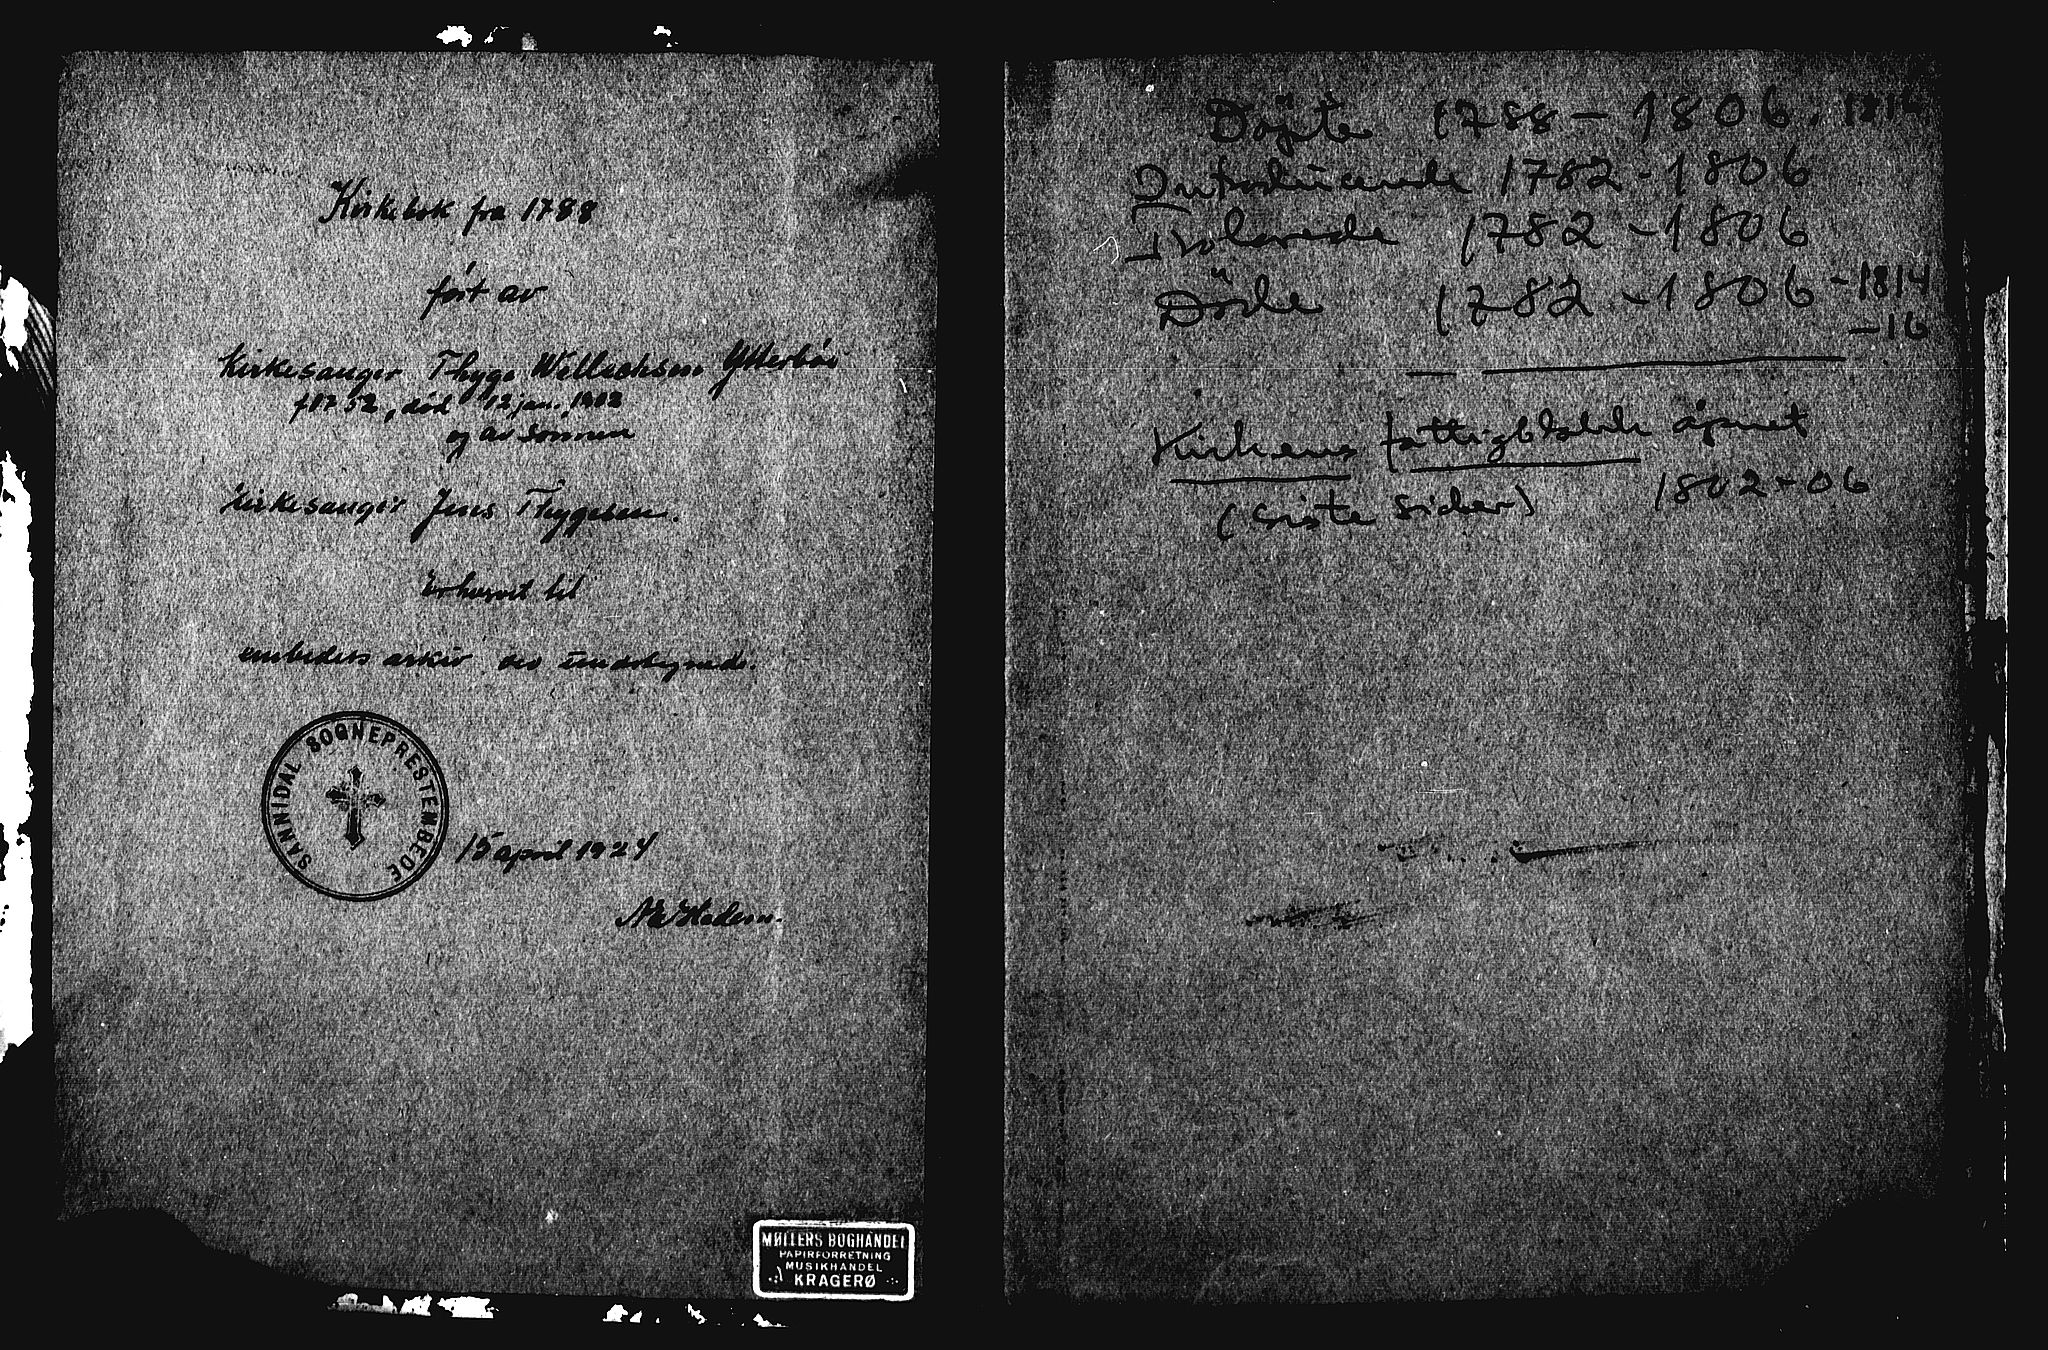 Kirkebok fra 1788
ført av
Kirkesanger Thyge Willechsen Ytterbøe
f 1732, død 12 jan. 1802
og av sønnen
kirkesanger Jens Thygesen.
erhvervet til
embedets arkiv ved undertegnede.
SANNIDAL SOGNEPRESTEMBEDE
15 april 1924
MØLLERS BOGHANDEL
PAPIRFORRETNING
MUSIKHANDEL
KRAGERØ
Döpte 1788 – 1806. 1814
Introducerede 1782 - 1806
Trolovede 1782 - 1806
Döde 1782 - 1806 - 1814
- 16
Kirkens fattigblokk åpnet
(siste sider) 1802 - 06